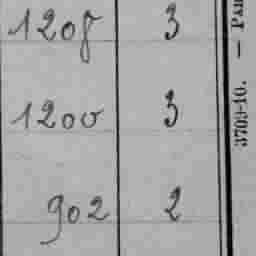 1208 3
1200 3
902 2
3709-10. — PAR